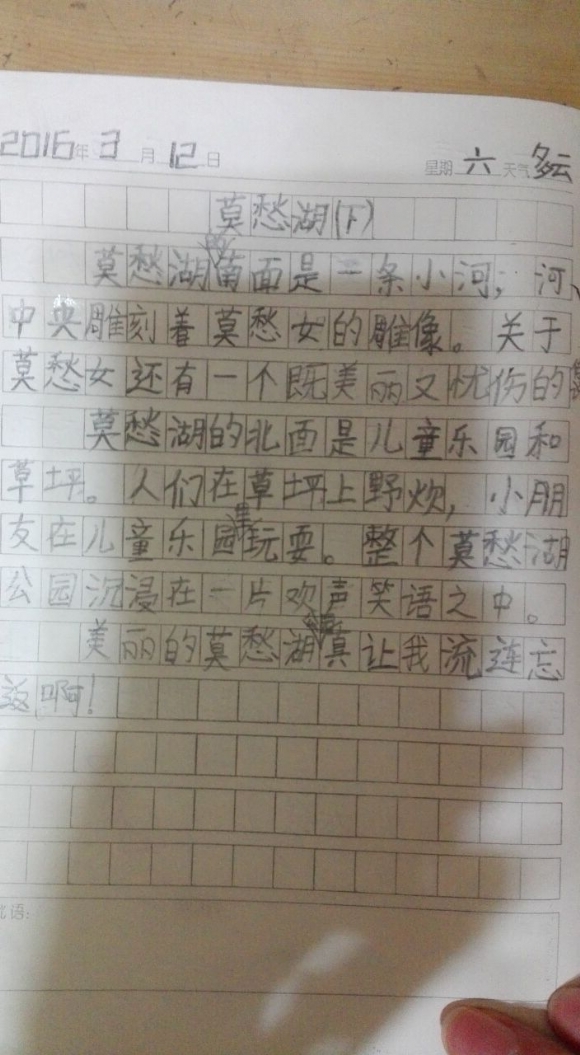 2016年3月12日 星期六 天气多云
莫愁湖(下)
莫愁湖的南面是一条小河，河
中央雕刻着莫愁女的雕像。关于
莫愁女还有一个既美丽又忧伤的
莫愁湖的北面是儿童乐园和
草坪。人们在草坪上野炊，小朋
友在儿童乐园里玩耍。整个莫愁湖
公园沉浸在一片欢声笑语之中。
美丽的莫愁湖真让我流连忘
返啊！
语：